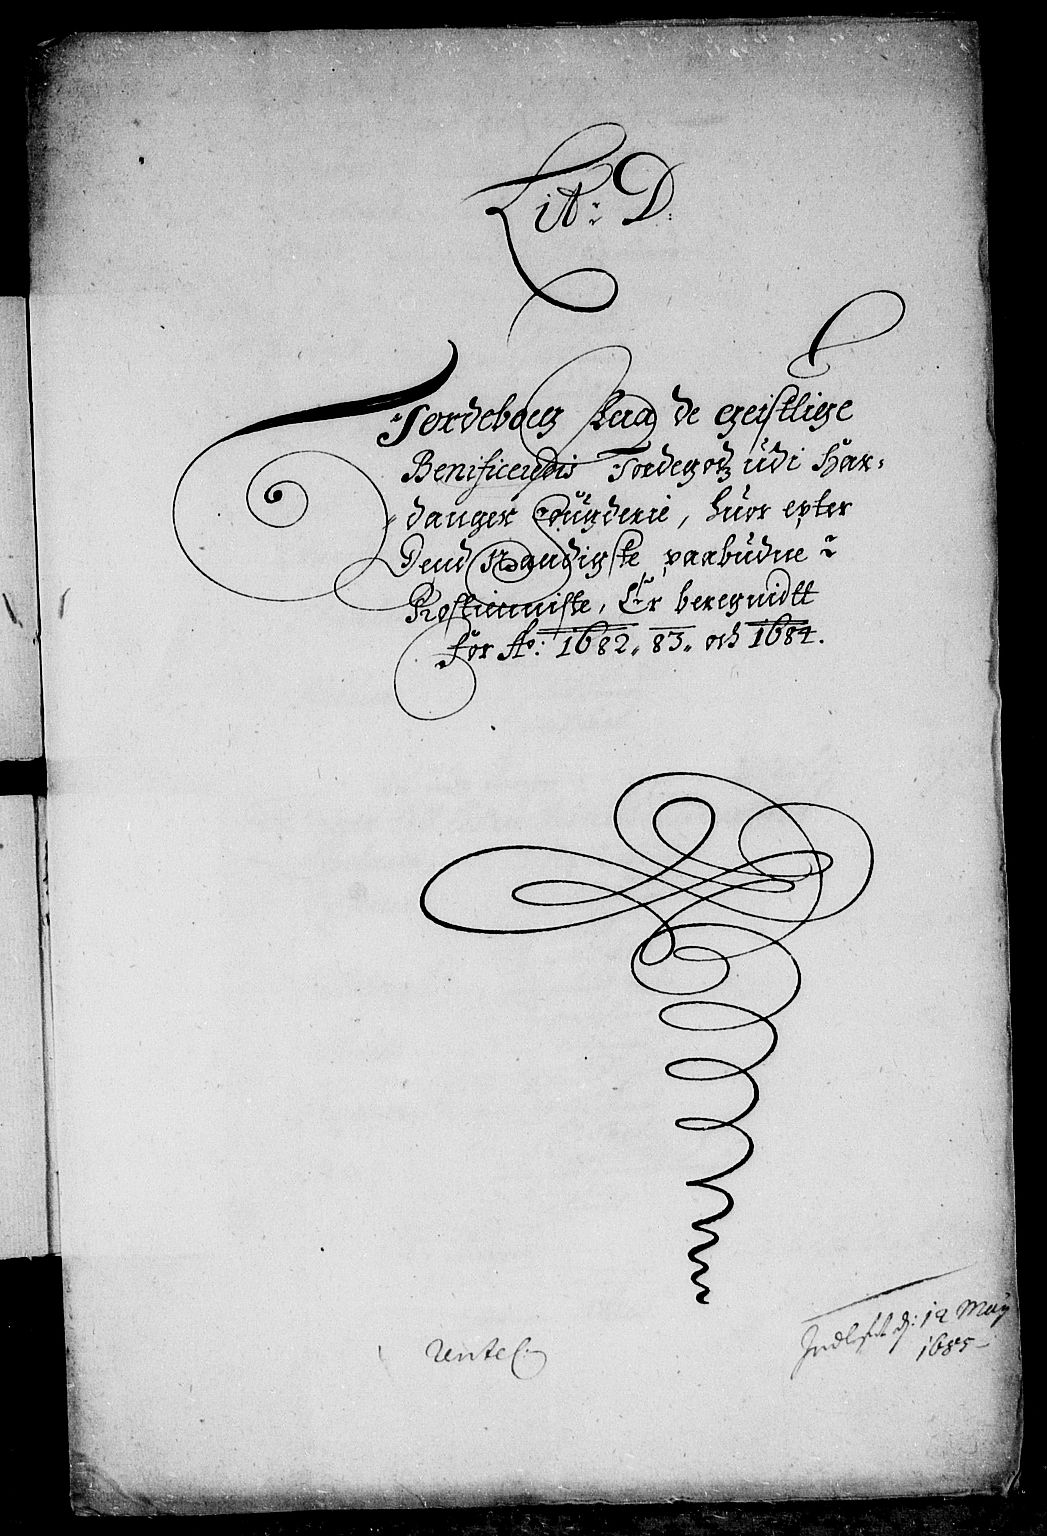 Lit: D:
Jordebog Paa de geistlige
Beneficerdis Jordegotz udi Har-
danger Fougderie, huor epter
Dend Naadigste paabudne
Rostienniste, Er beregnidtt
for Ao: 1682. 83. och 1684.
Indlefuld d: 12 Maÿ
1685